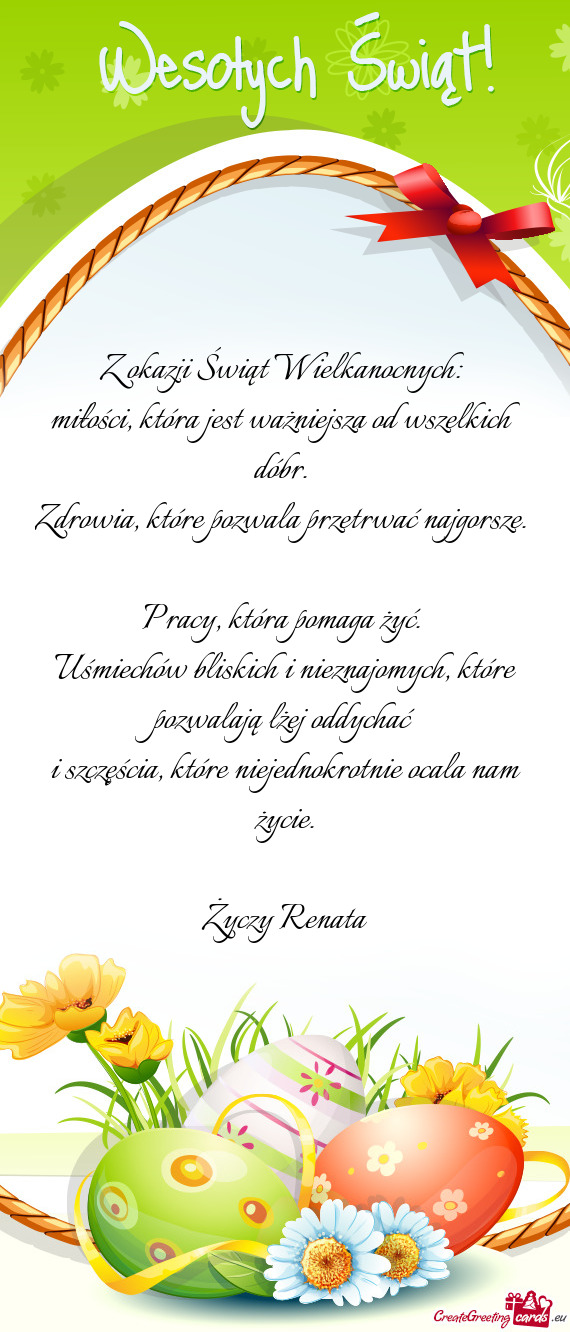 Wesołych Świąt!
Z okazji Świąt Wielkanocnych:
miłości, która jest ważniejsza od wszelkich
dóbr.
Zdrowia, które pozwala przetrwać najgorsze.
Pracy, która pomaga żyć.
Uśmiechów bliskich i nieznajomych, które
pozwalają lżej oddychać
i szczęścia, które niejednokrotnie ocala nam
życie.
Życzy Renata
CreateGreeting cards .eu